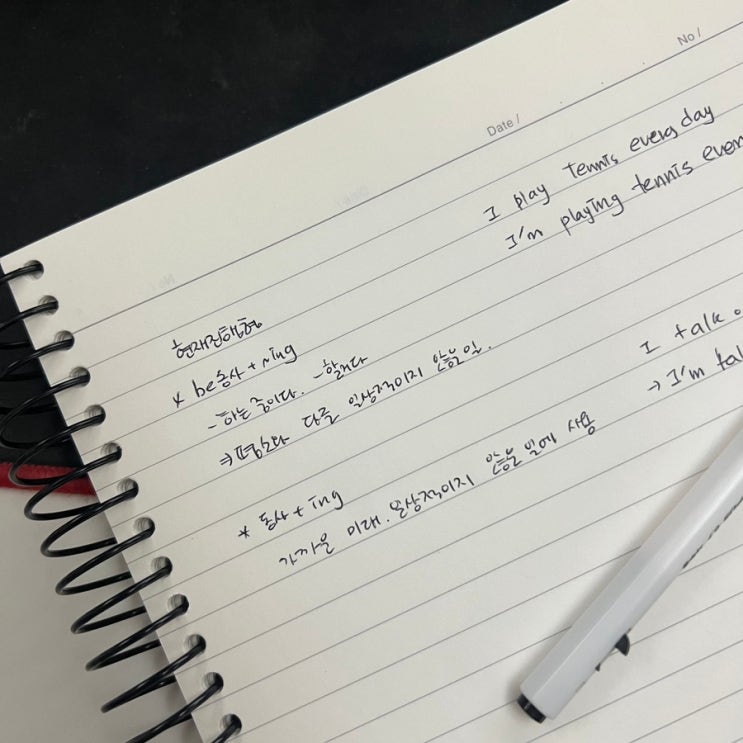 No /
Date /
I play tennis every day
I'm playing tennis ever
현재진행형
* be동사 + ~ing
-하는 중이다. -할거다
⇒ 평소와 다를 일상적이지 않은 일.
I talk
→ I'm tal
* 동사 + ing
가까운 미래. 일상적이지 않은 일에 사용